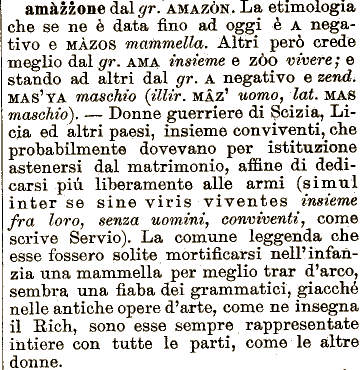 amàżżone dal gr. AMAZÒN. La etimologia
che se ne è data fino ad oggi è A nega-
tivo e MÀZOS mammella. Altri però crede
meglio dal gr. AMA insieme e ZÒO vivere; e
stando ad altri dal gr. A negativo e zend.
MAS'YA maschio (illir. MÂZ' uomo, lat. MAS
maschio). — Donne guerriere di Scizia, Li-
cia ed altri paesi, insieme conviventi, che
probabilmente dovevano per istituzione
astenersi dal matrimonio, affine di dedi-
carsi piú liberamente alle armi (simul
inter se sine viris viventes insieme
fra loro, senza uomini, conviventi, come
scrive Servio). La comune leggenda che
esse fossero solite mortificarsi nell'infan-
zia una mammella per meglio trar d'arco,
sembra una fiaba dei grammatici, giacché
nelle antiche opere d'arte, come ne insegna
il Rich, sono esse sempre rappresentate
intiere con tutte le parti, come le altre
donne.